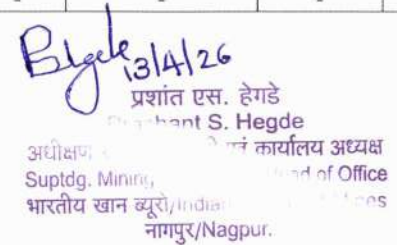 13/4/26
प्रशांत एस. हेगडे
Prashant S. Hegde
अधीक्षण एवं कार्यालय अध्यक्ष
Suptdg. Mining, Head of Office
भारतीय खान ब्यूरो/Indian
नागपुर/Nagpur.